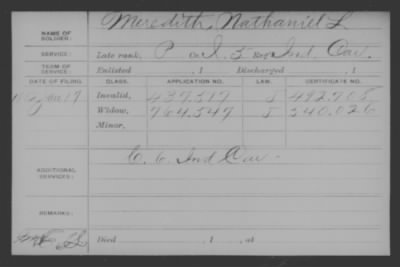 NAME OF SOLDIER: Meredith, Nathaniel L
SERVICE: Late rank, P Co. I, 5 Reg't Ind. Cav.
TERM OF SERVICE: Enlisted , 1 Discharged , 1
DATE OF FILING. CLASS. APPLICATION NO. LAW. CERTIFICATE NO.
Jan 17 Invalid, 437,517 J 492.705
Widow, 764,547 J 540.026
Minor,
ADDITIONAL SERVICES: C. 6. Ind Cav.
REMARKS:
Died , 1 , at